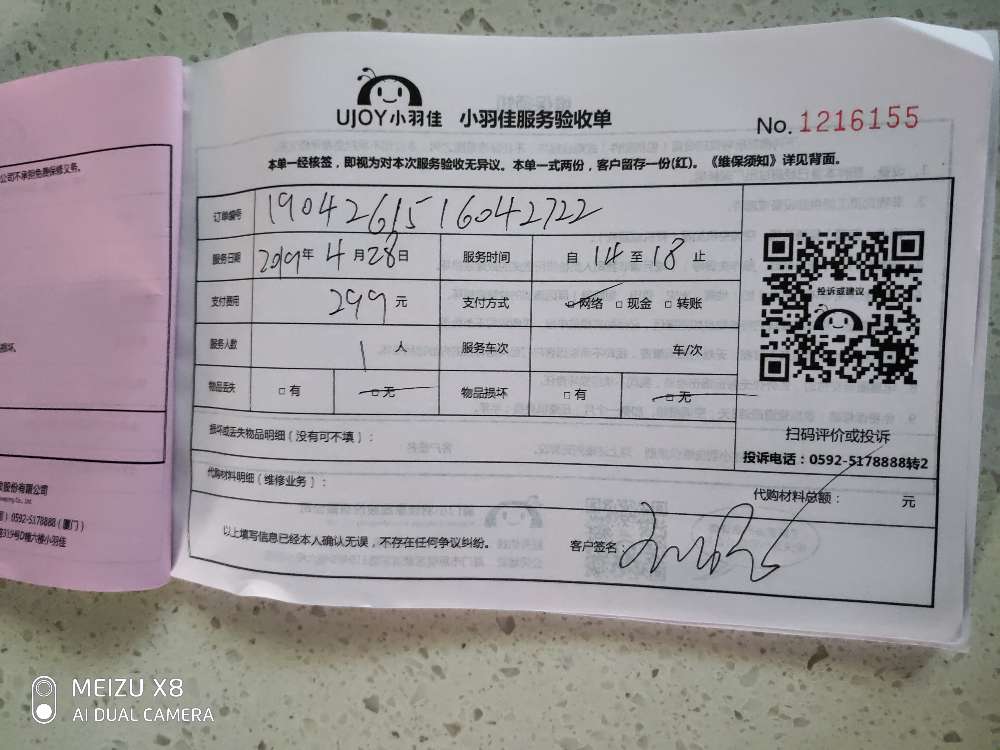 公司不承担免费保修义务。
损坏。
股份有限公司
0592-5178888（厦门）
319号D幢六楼小羽佳
UJOY小羽佳 小羽佳服务验收单
No. 1216155
本单一经核签，即视为对本次服务验收无异议。本单一式两份，客户留存一份(红)。《维保须知》详见背面。
订单编号 1904261516042722
服务日期 2019年 4 月 28日 服务时间 自 14 至 18 止
支付费用 299 元 支付方式 □网络 □现金 □转账
服务人数 1 人 服务车次 车/次
物品丢失 □有 □无 物品损坏 □有 □无
投诉或建议
扫码评价或投诉
投诉电话：0592-5178888转2
损坏或丢失物品明细（没有可不填）：
代购材料明细（维修业务）： 代购材料总额： 元
以上填写信息已经本人确认无误，不存在任何争议纠纷。 客户签名：
MEIZU X8
AI DUAL CAMERA